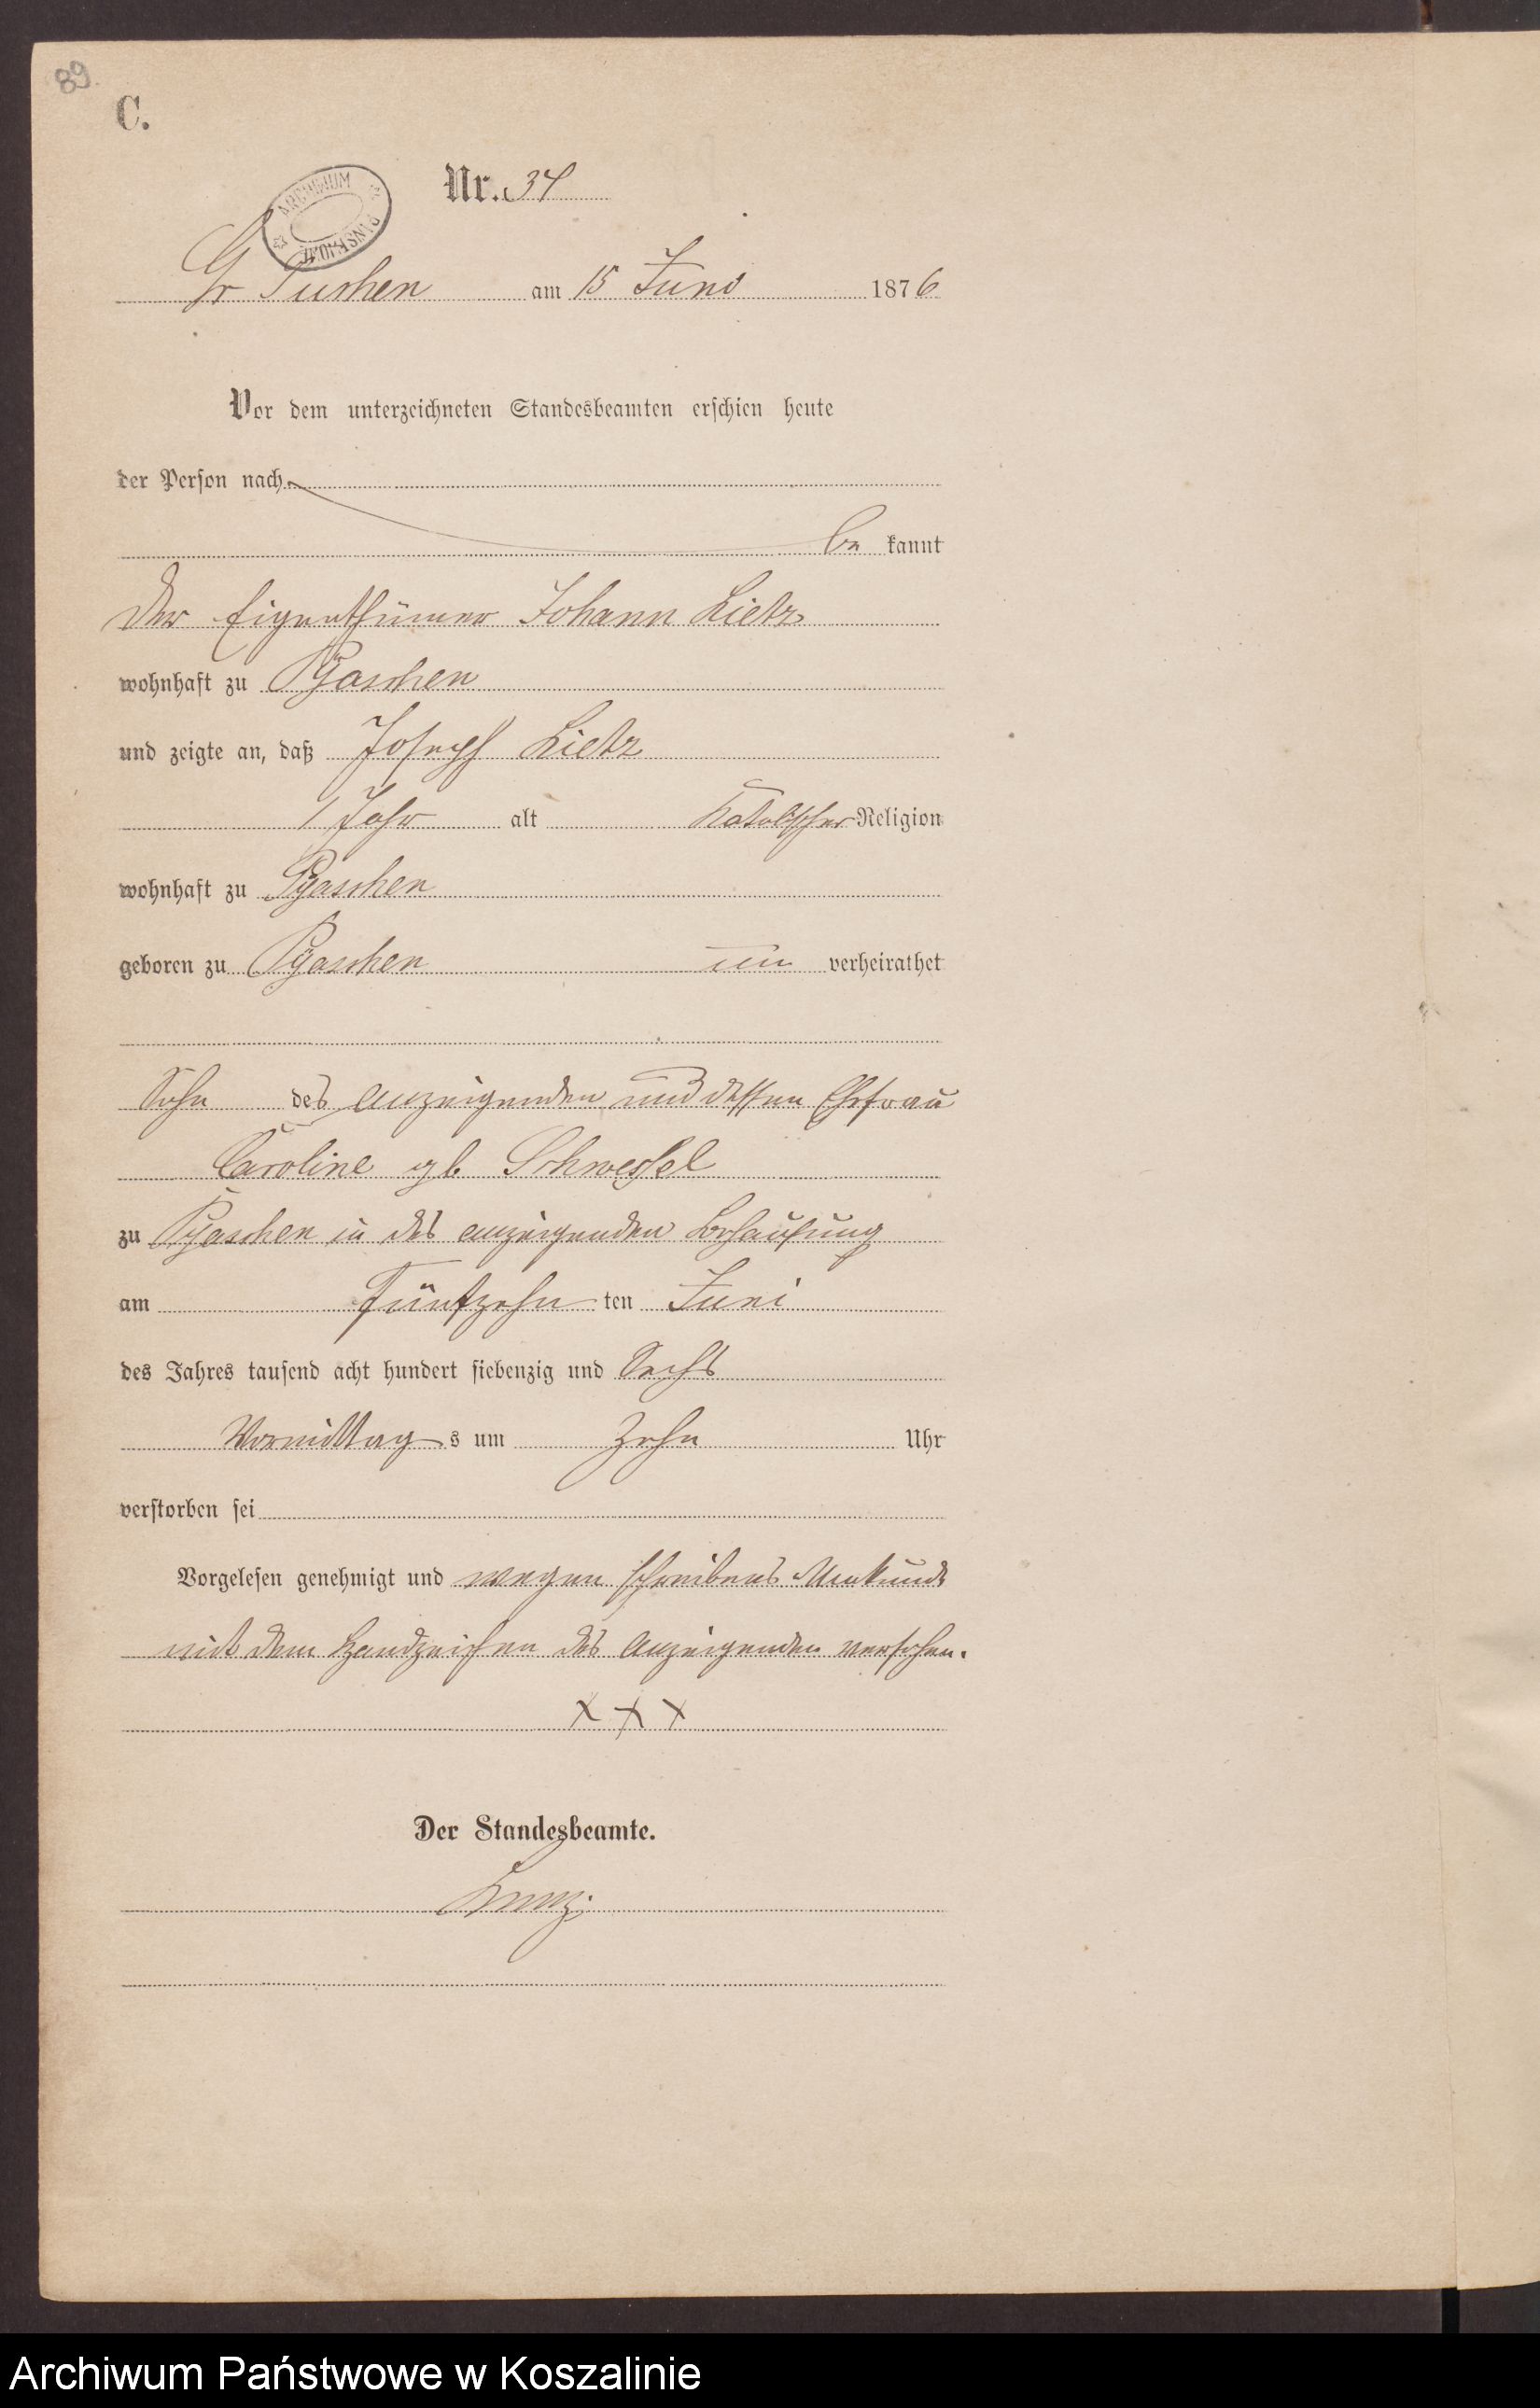 89
C.
ARCHIWUM
PAŃSTWOWE
Nr. 34
Gr Tuchen am 15 Juni 1876
Vor dem unterzeichneten Standesbeamten erschien heute
der Person nach
be kannt
der Eigenthümer Johann Lietz
wohnhaft zu Pyaschen
und zeigte an, daß Joseph Lietz
1 Jahr alt katolischer Religion
wohnhaft zu Pyaschen
geboren zu Pyaschen un verheirathet
Sohn des Anzeigenden und dessen Ehefrau
Caroline gb Schwessel
zu Pyaschen in des anzeigenden Behausung
am Fünfzehn ten Juni
des Jahres tausend acht hundert siebenzig und Sechs
Vormittag s um Zehn Uhr
verstorben sei
Vorgelesen genehmigt und wegen schreibens Unkunde
mit dem Handzeichen des Anzeigenden versehen.
X X X
Der Standesbeamte.
Archiwum Państwowe w Koszalinie